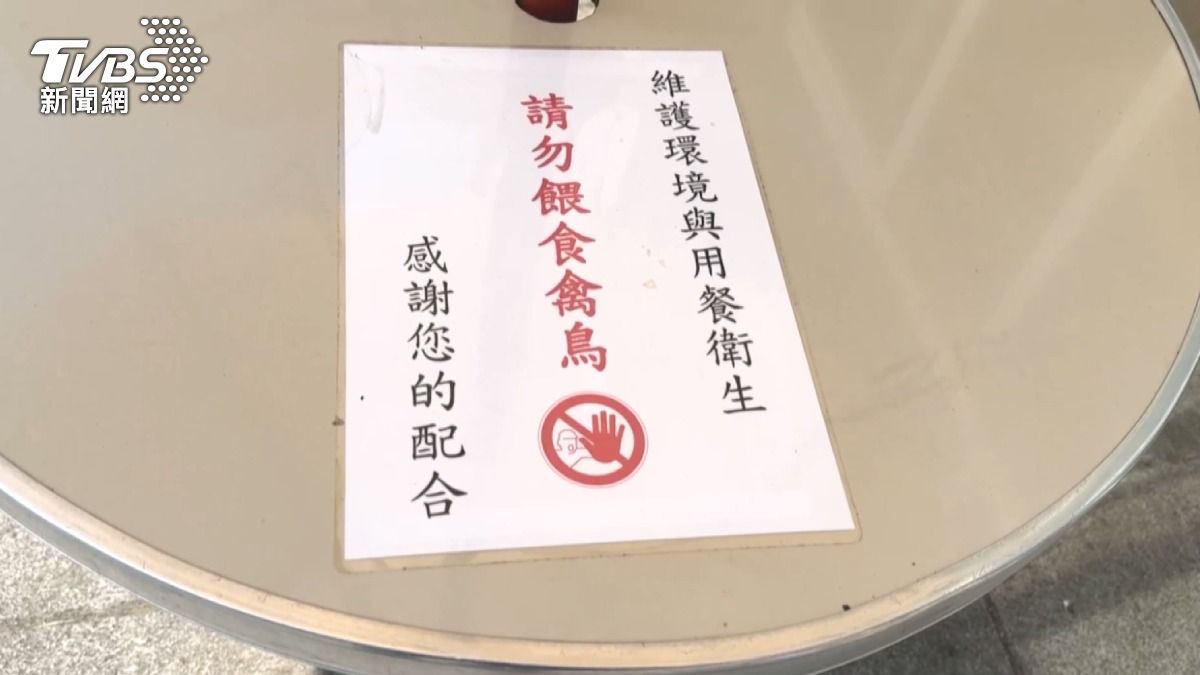 TVBS
新聞網
維護環境與用餐衛生
請勿餵食禽鳥
感謝您的配合